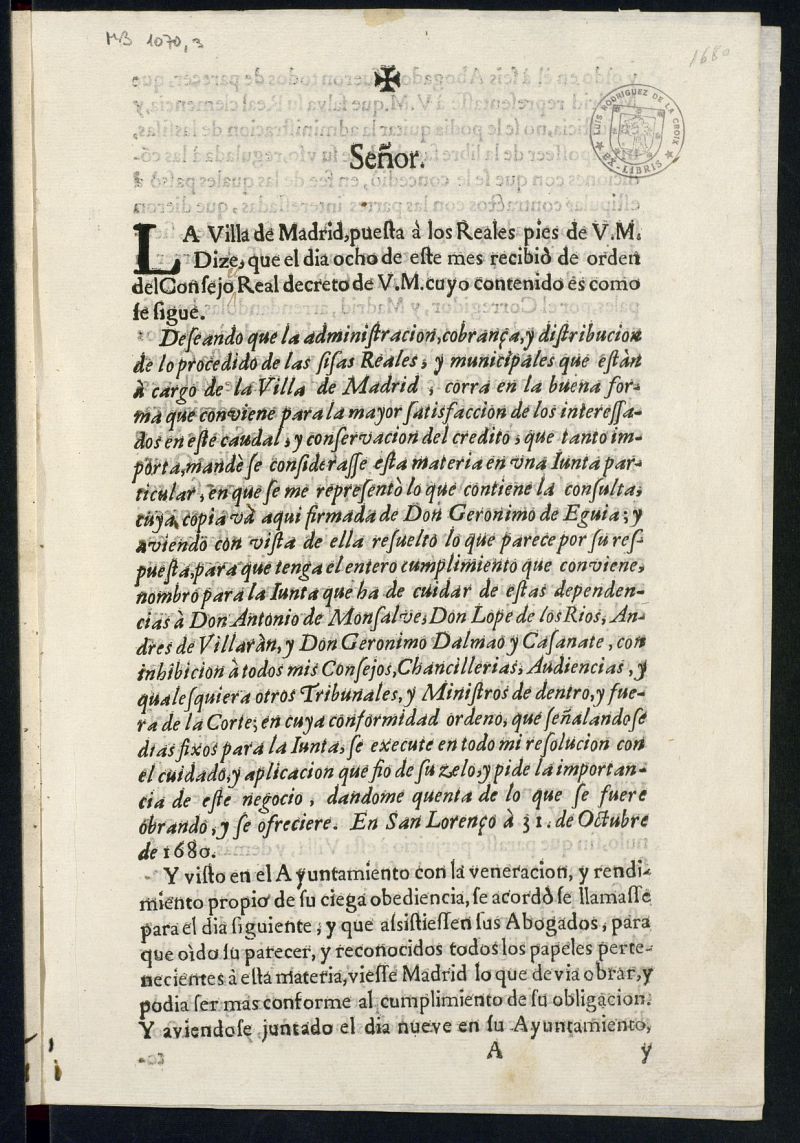 MB 1070,3
1680
LUIS RODRIGUEZ DE LA CROIX
EX-LIBRIS
✠
Señor.
LA Villa de Madrid, puesta à los Reales pies de V.M.
Dize, que el dia ocho de este mes recibiò de orden
del Consejo Real decreto de V.M. cuyo contenido es como
se sigue.
Deseando que la administracion, cobrança, y distribucion
de lo procedido de las sisas Reales, y municipales que estàn
à cargo de la Villa de Madrid, corra en la buena for-
ma que conviene para la mayor satisfaccion de los interessa-
dos en este caudal, y conservacion del credito, que tanto im-
porta, mandè se considerasse esta materia en vna Iunta par-
ticular, en que se me representò lo que contiene la consulta,
cuya copia và aqui firmada de Don Geronimo de Eguia; y
aviendo con vista de ella resuelto lo que parece por su res-
puesta, para que tenga el entero cumplimiento que conviene,
nombro para la Iunta que ha de cuidar de estas dependen-
cias à Don Antonio de Monsalve, Don Lope de los Rios, An-
dres de Villaràn, y Don Geronimo Dalmao y Casanate, con
inhibicion à todos mis Consejos, Chancillerias, Audiencias, y
qualesquiera otros Tribunales, y Ministros de dentro, y fue-
ra de la Corte; en cuya conformidad ordeno, que señalandose
dias fixos para la Iunta, se execute en todo mi resolucion con
el cuidado, y aplicacion que fio de su zelo, y pide la importan-
cia de este negocio, dandome quenta de lo que se fuere
obrando, y se ofreciere. En San Lorenço à 31. de Octubre
de 1680.
Y visto en el Ayuntamiento con la veneracion, y rendi-
miento propio de su ciega obediencia, se acordò se llamasse
para el dia siguiente, y que assistiessen sus Abogados, para
que oìdo su parecer, y reconocidos todos los papeles perte-
necientes à esta materia, viesse Madrid lo que devia obrar, y
podia ser mas conforme al cumplimiento de su obligacion.
Y aviendose juntado el dia nueve en su Ayuntamiento,
A y